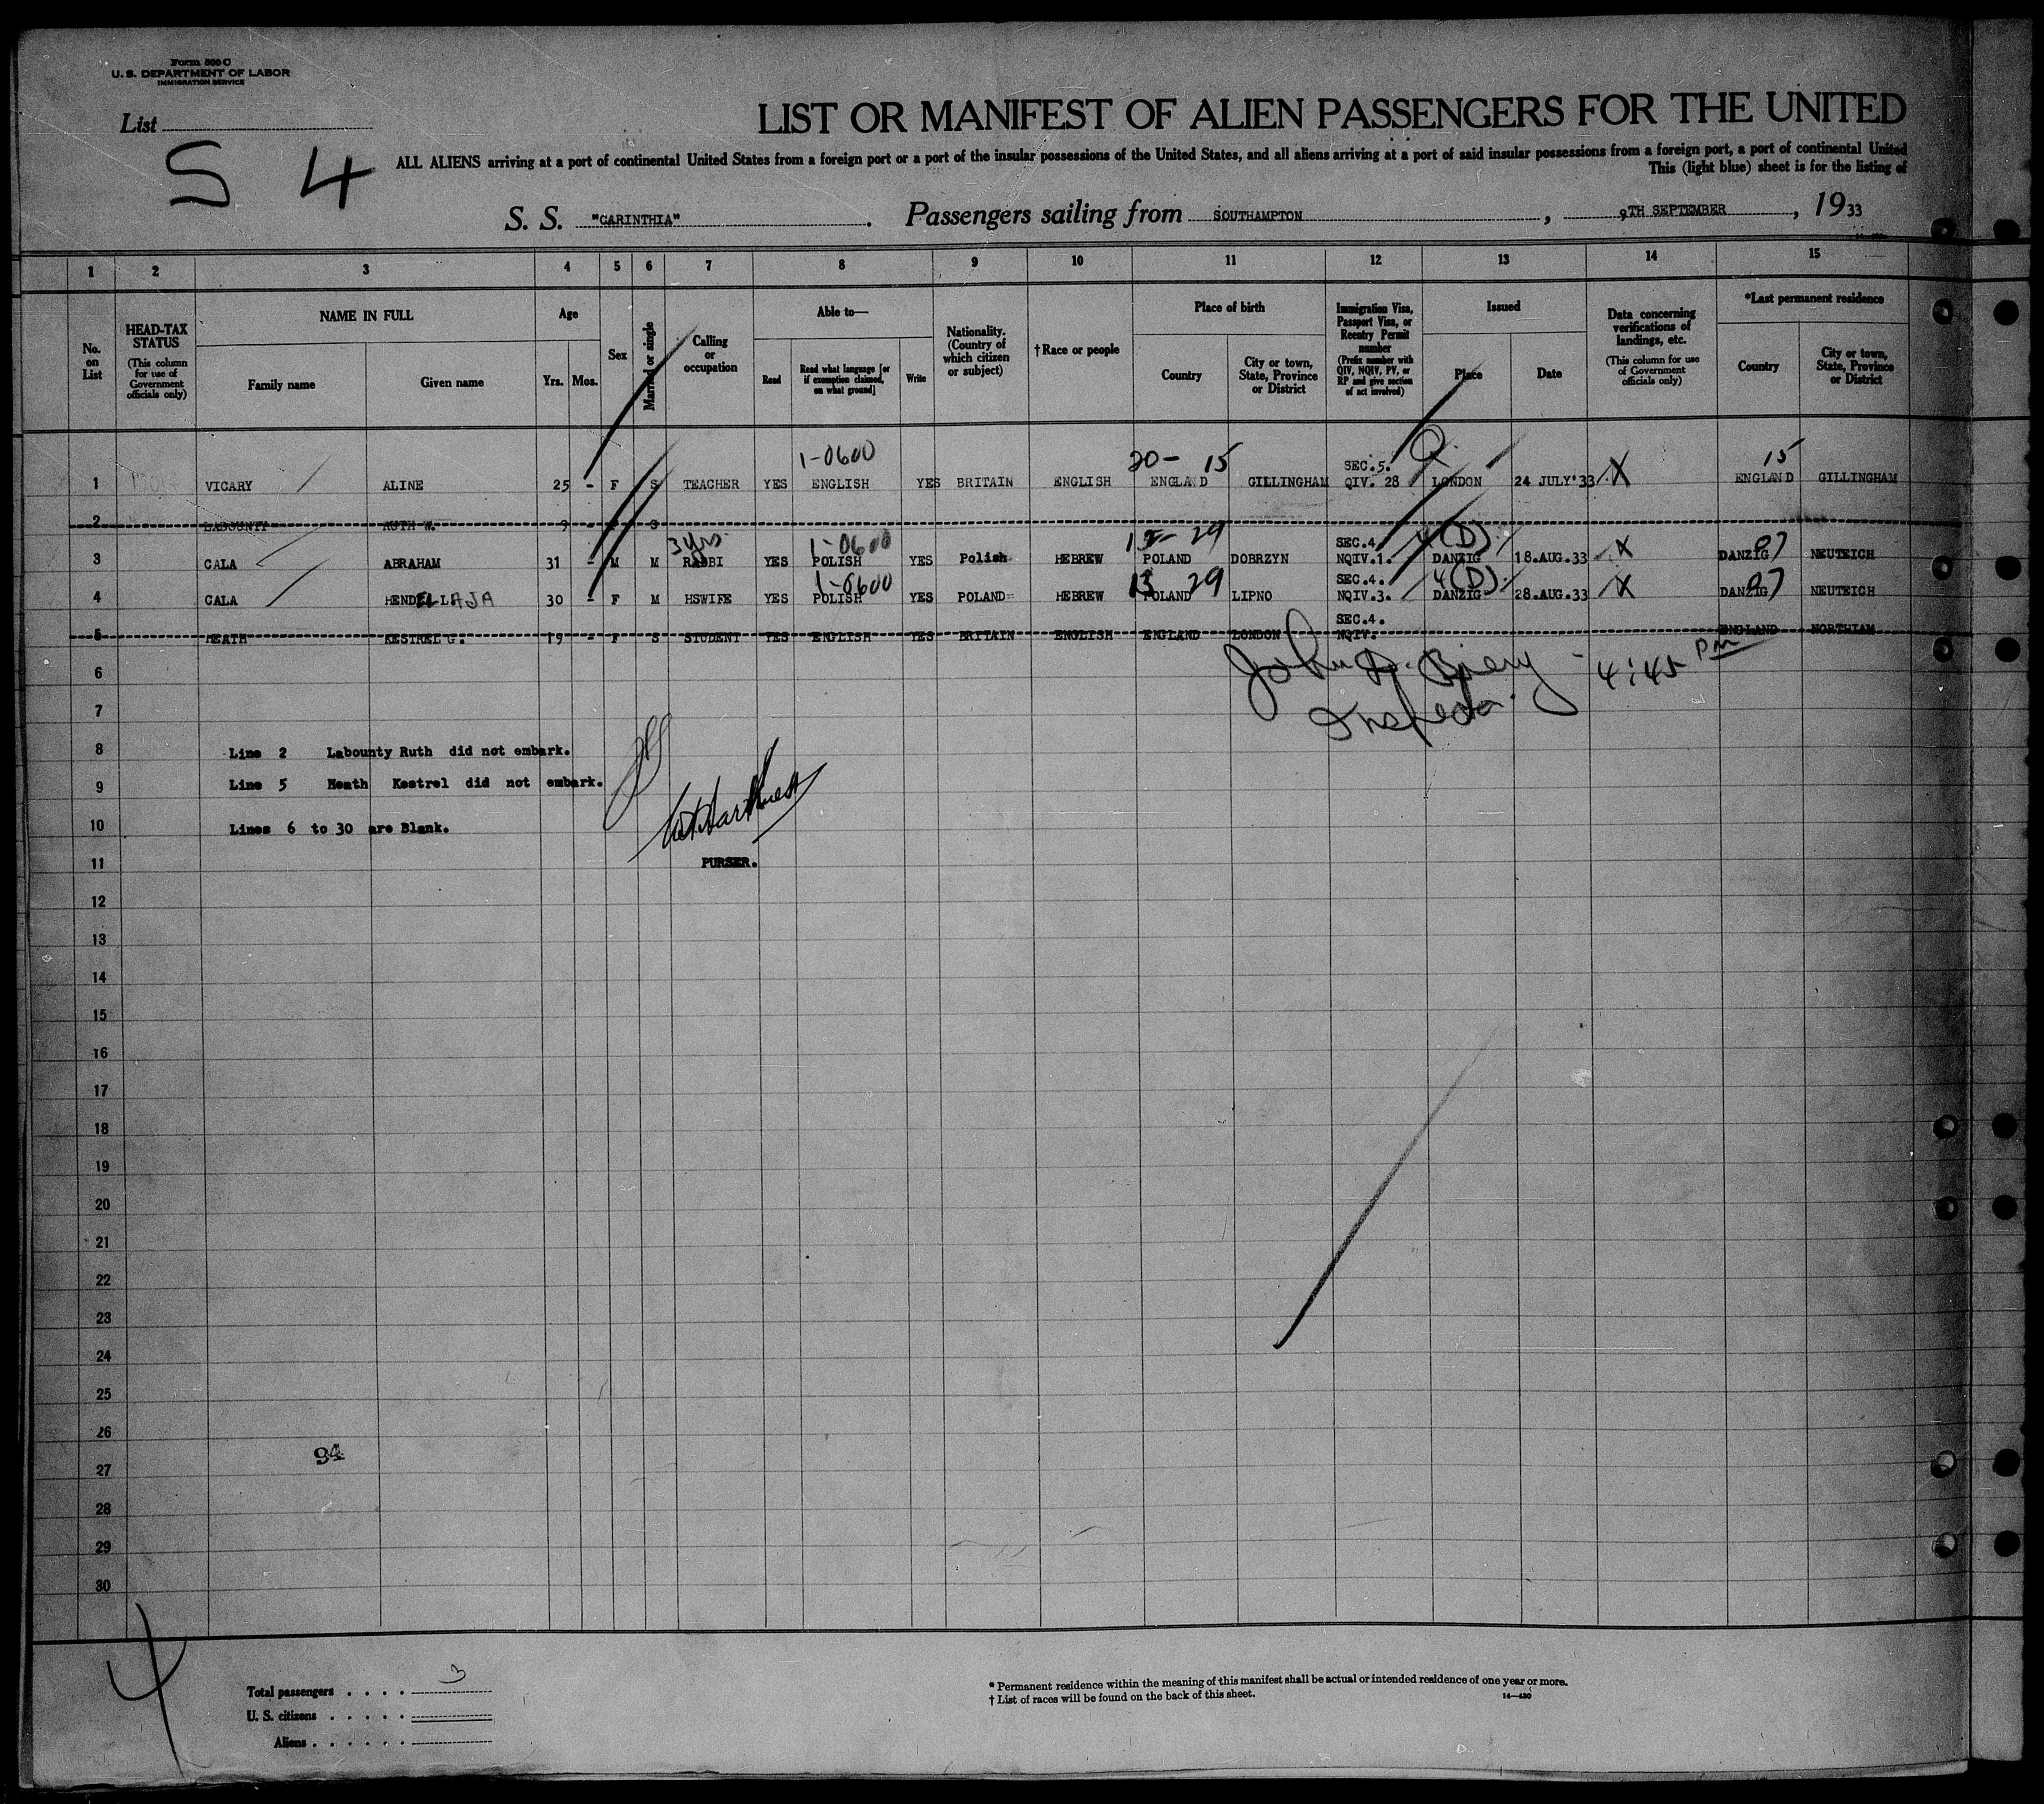 Form 500 C
U. S. DEPARTMENT OF LABOR
IMMIGRATION SERVICE
List
S 4
LIST OR MANIFEST OF ALIEN PASSENGERS FOR THE UNITED
ALL ALIENS arriving at a port of continental United States from a foreign port or a port of the insular possessions of the United States, and all aliens arriving at a port of said insular possessions from a foreign port, a port of continental United
This (light blue) sheet is for the listing of
S. S. "CARINTHIA". Passengers sailing from SOUTHAMPTON, 9TH SEPTEMBER, 1933
1 2 3 4 5 6 7 8 9 10 11 12 13 14 15
No. on List
HEAD-TAX STATUS (This column for use of Government officials only)
NAME IN FULL
Family name
Given name
Age
Yrs. Mos.
Sex
Married or single
Calling or occupation
Able to—
Read
Read what language [or if exemption claimed, on what ground]
Write
Nationality. (Country of which citizen or subject)
†Race or people
Place of birth
Country
City or town, State, Province or District
Immigration Visa, Passport Visa, or Reentry Permit number (Prefix number with QIV, NQIV, PV, or RP and give section of act involved)
Issued
Place
Date
Data concerning verifications of landings, etc. (This column for use of Government officials only)
*Last permanent residence
Country
City or town, State, Province or District
1-0600 20- 15 SEC.5. Q 15
1 VICARY ALINE 25 - F S TEACHER YES ENGLISH YES BRITAIN ENGLISH ENGLAND GILLINGHAM QIV. 28 LONDON 24 JULY'33 X ENGLAND GILLINGHAM
2 LABOUNTY RUTH W. 9 S
3 yrs. 1-0600 29 SEC.4. 4(D) 07
3 CALA ABRAHAM 31 - M M RABBI YES POLISH YES Polish HEBREW POLAND DOBRZYN NQIV.1. DANZIG 18.AUG.33 X DANZIG NEUTEICH
1-0600 13 29 SEC.4. 4(D) 07
4 CALA HENDEL LAJA 30 - F M HSWIFE YES POLISH YES POLAND HEBREW POLAND LIPNO NQIV.3. DANZIG 28.AUG.33 X DANZIG NEUTEICH
SEC.4.
5 HEATH KESTREL G. 19 - F S STUDENT YES ENGLISH YES BRITAIN ENGLISH ENGLAND LONDON NQIV. ENGLAND NORTHIAM
6 John 4:45 PM
7
8 Line 2 Labounty Ruth did not embark.
9 Line 5 Heath Kestrel did not embark.
10 Lines 6 to 30 are Blank.
11 PURSER.
12
13
14
15
16
17
18
19
20
21
22
23
24
25
26
94
27
28
29
30
4
Total passengers . . . . 3
U. S. citizens . . . . .
Aliens . . . . . .
* Permanent residence within the meaning of this manifest shall be actual or intended residence of one year or more.
† List of races will be found on the back of this sheet.
14—430